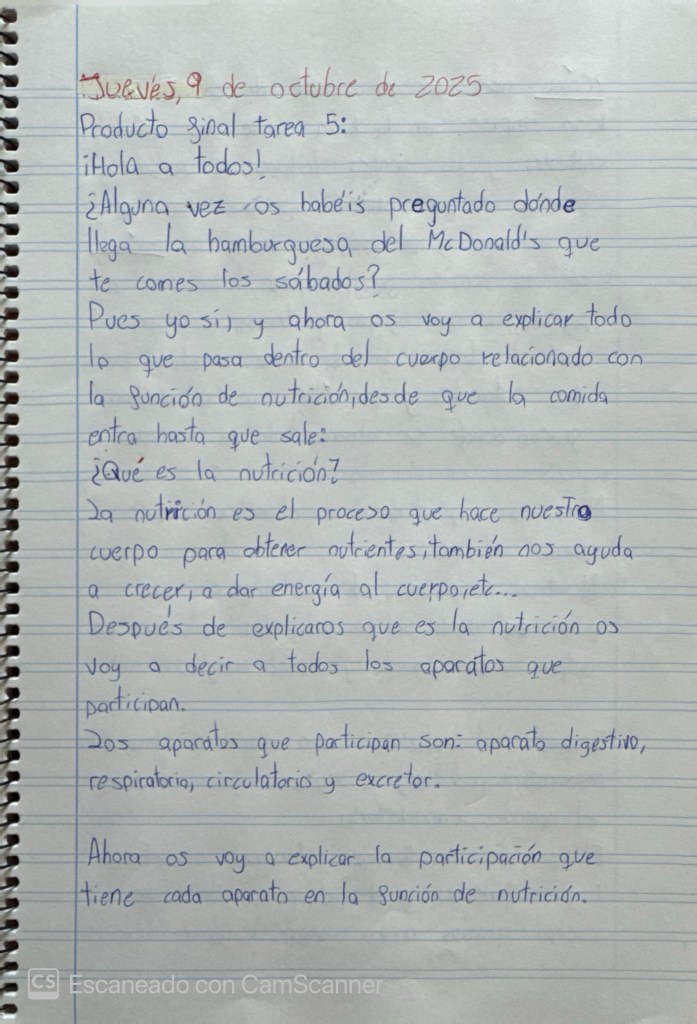 Jueves, 9 de octubre de 2025
Producto final tarea 5:
¡Hola a todos!
¿Alguna vez os habéis preguntado dónde
llega la hamburguesa del McDonald's que
te comes los sábados?
Pues yo sí, y ahora os voy a explicar todo
lo que pasa dentro del cuerpo relacionado con
la función de nutrición, desde que la comida
entra hasta que sale:
¿Qué es la nutrición?
La nutrición es el proceso que hace nuestro
cuerpo para obtener nutrientes, también nos ayuda
a crecer, a dar energía al cuerpo, etc...
Después de explicaros que es la nutrición os
voy a decir a todos los aparatos que
participan.
Los aparatos que participan son: aparato digestivo,
respiratorio, circulatorio y excretor.
Ahora os voy a explicar la participación que
tiene cada aparato en la función de nutrición.
CS Escaneado con CamScanner